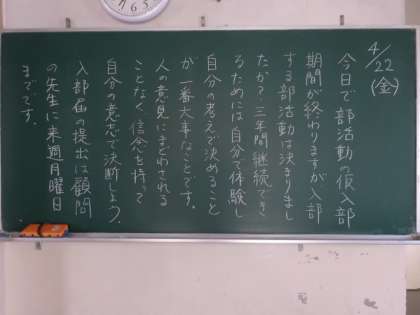 4/22
(金)
今日で部活動の仮入部
期間が終わりますが入部
する部活動は決まりまし
たか？三年間継続でき
るためには自分で体験し
自分の考えで決めること
が一番大事なことです。
人の意見にまどわされる
ことなく信念を持って
自分の意志で決断しよう。
入部届の提出は顧問
の先生に来週月曜日
までです。